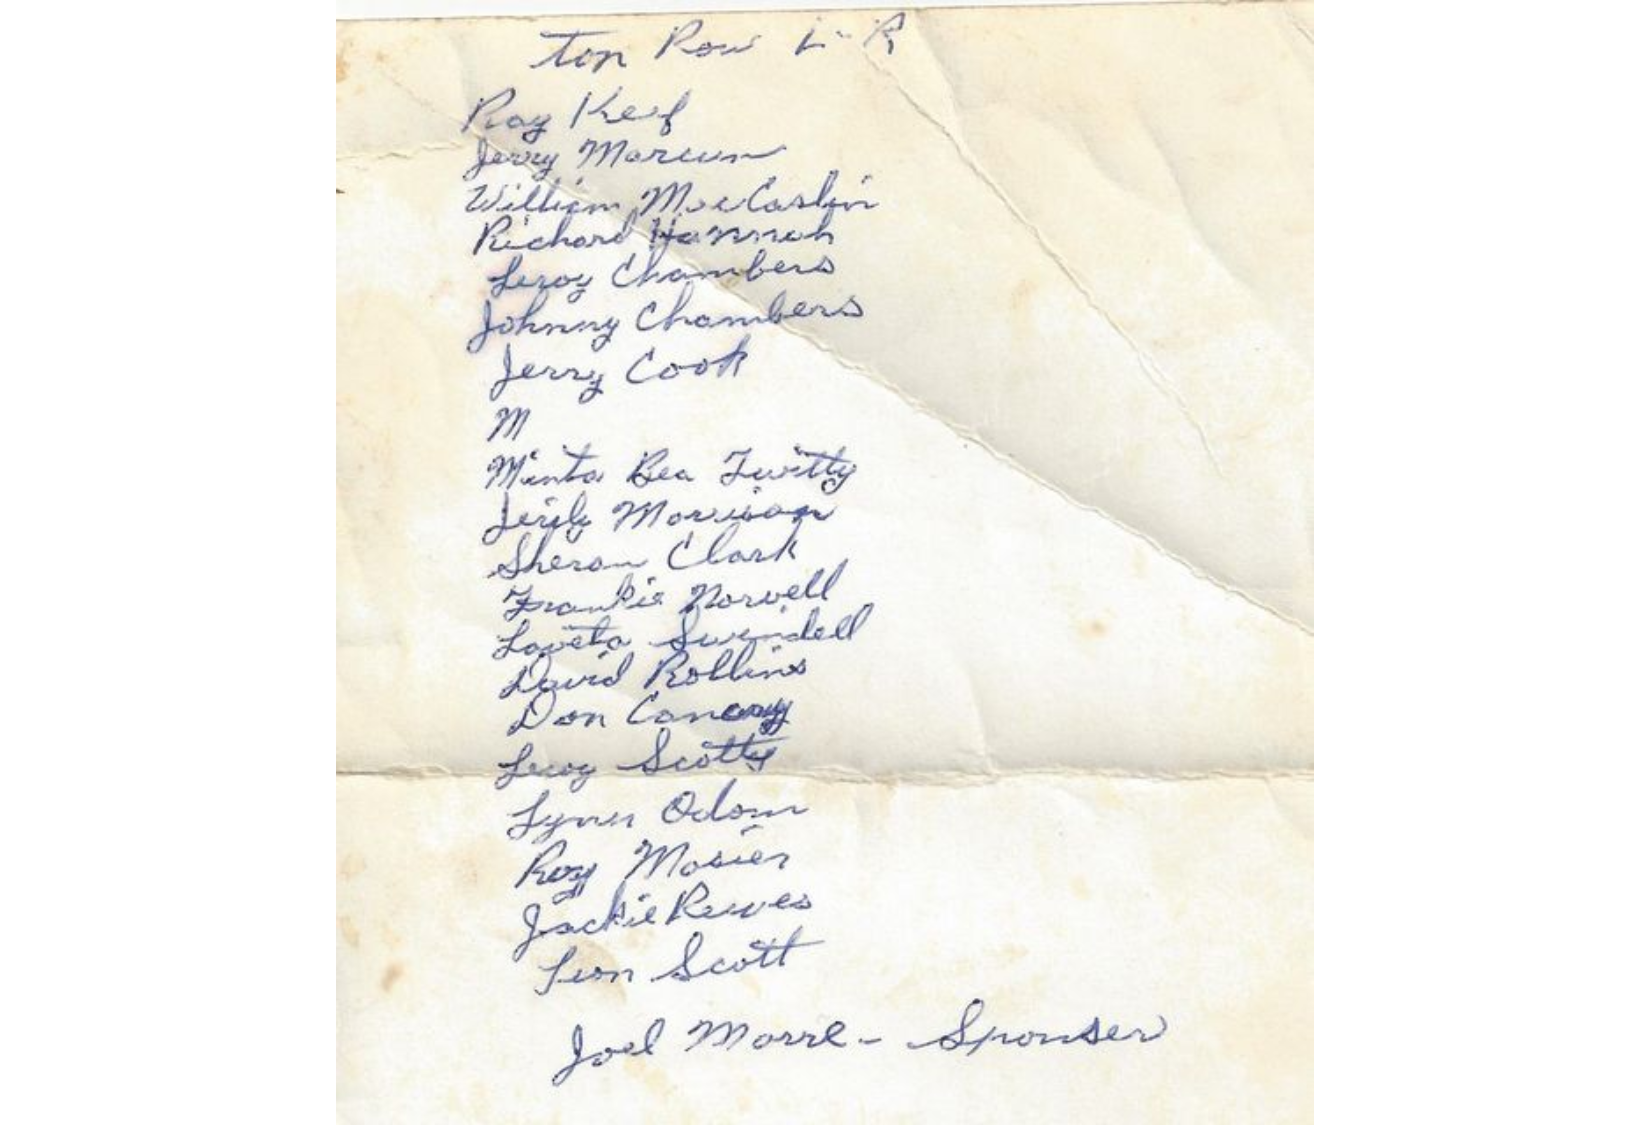 Top Row L-R
Ray Keef
Jerry Marcum
William MacCaslin
Richard Hannah
Leroy Chambers
Johnny Chambers
Jerry Cook
M
Minta Bea Twitty
Morrison
Sharon Clark
Frankie Norvell
Laveta Swindell
David Rollins
Don Canary
Leroy Scotty
Lynn Odom
Roy Mosier
Jackie Reeves
Leon Scott
Joel Morre - Sponser